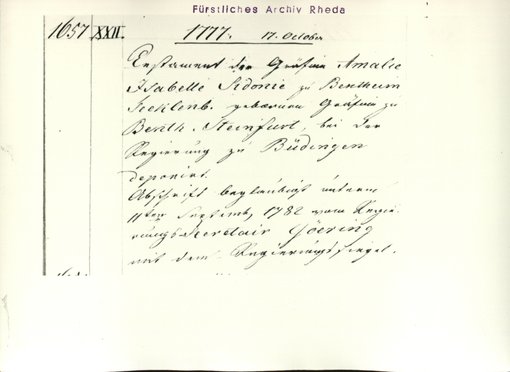 Fürstliches Archiv Rheda
1657 XXII. 1777. 17. October
Testament der Gräfin Amalie
Isabelle Sidonie zu Bentheim
Tecklenb. geborenen Gräfin zu
Benth. Steinfurt, bei der
Regierung zu Büdingen
deponirt.
Abschrift beglaubigt unterm
11ten Septemb. 1782 vom Regie-
rungssecretair Göering
mit dem Regierungssiegel.